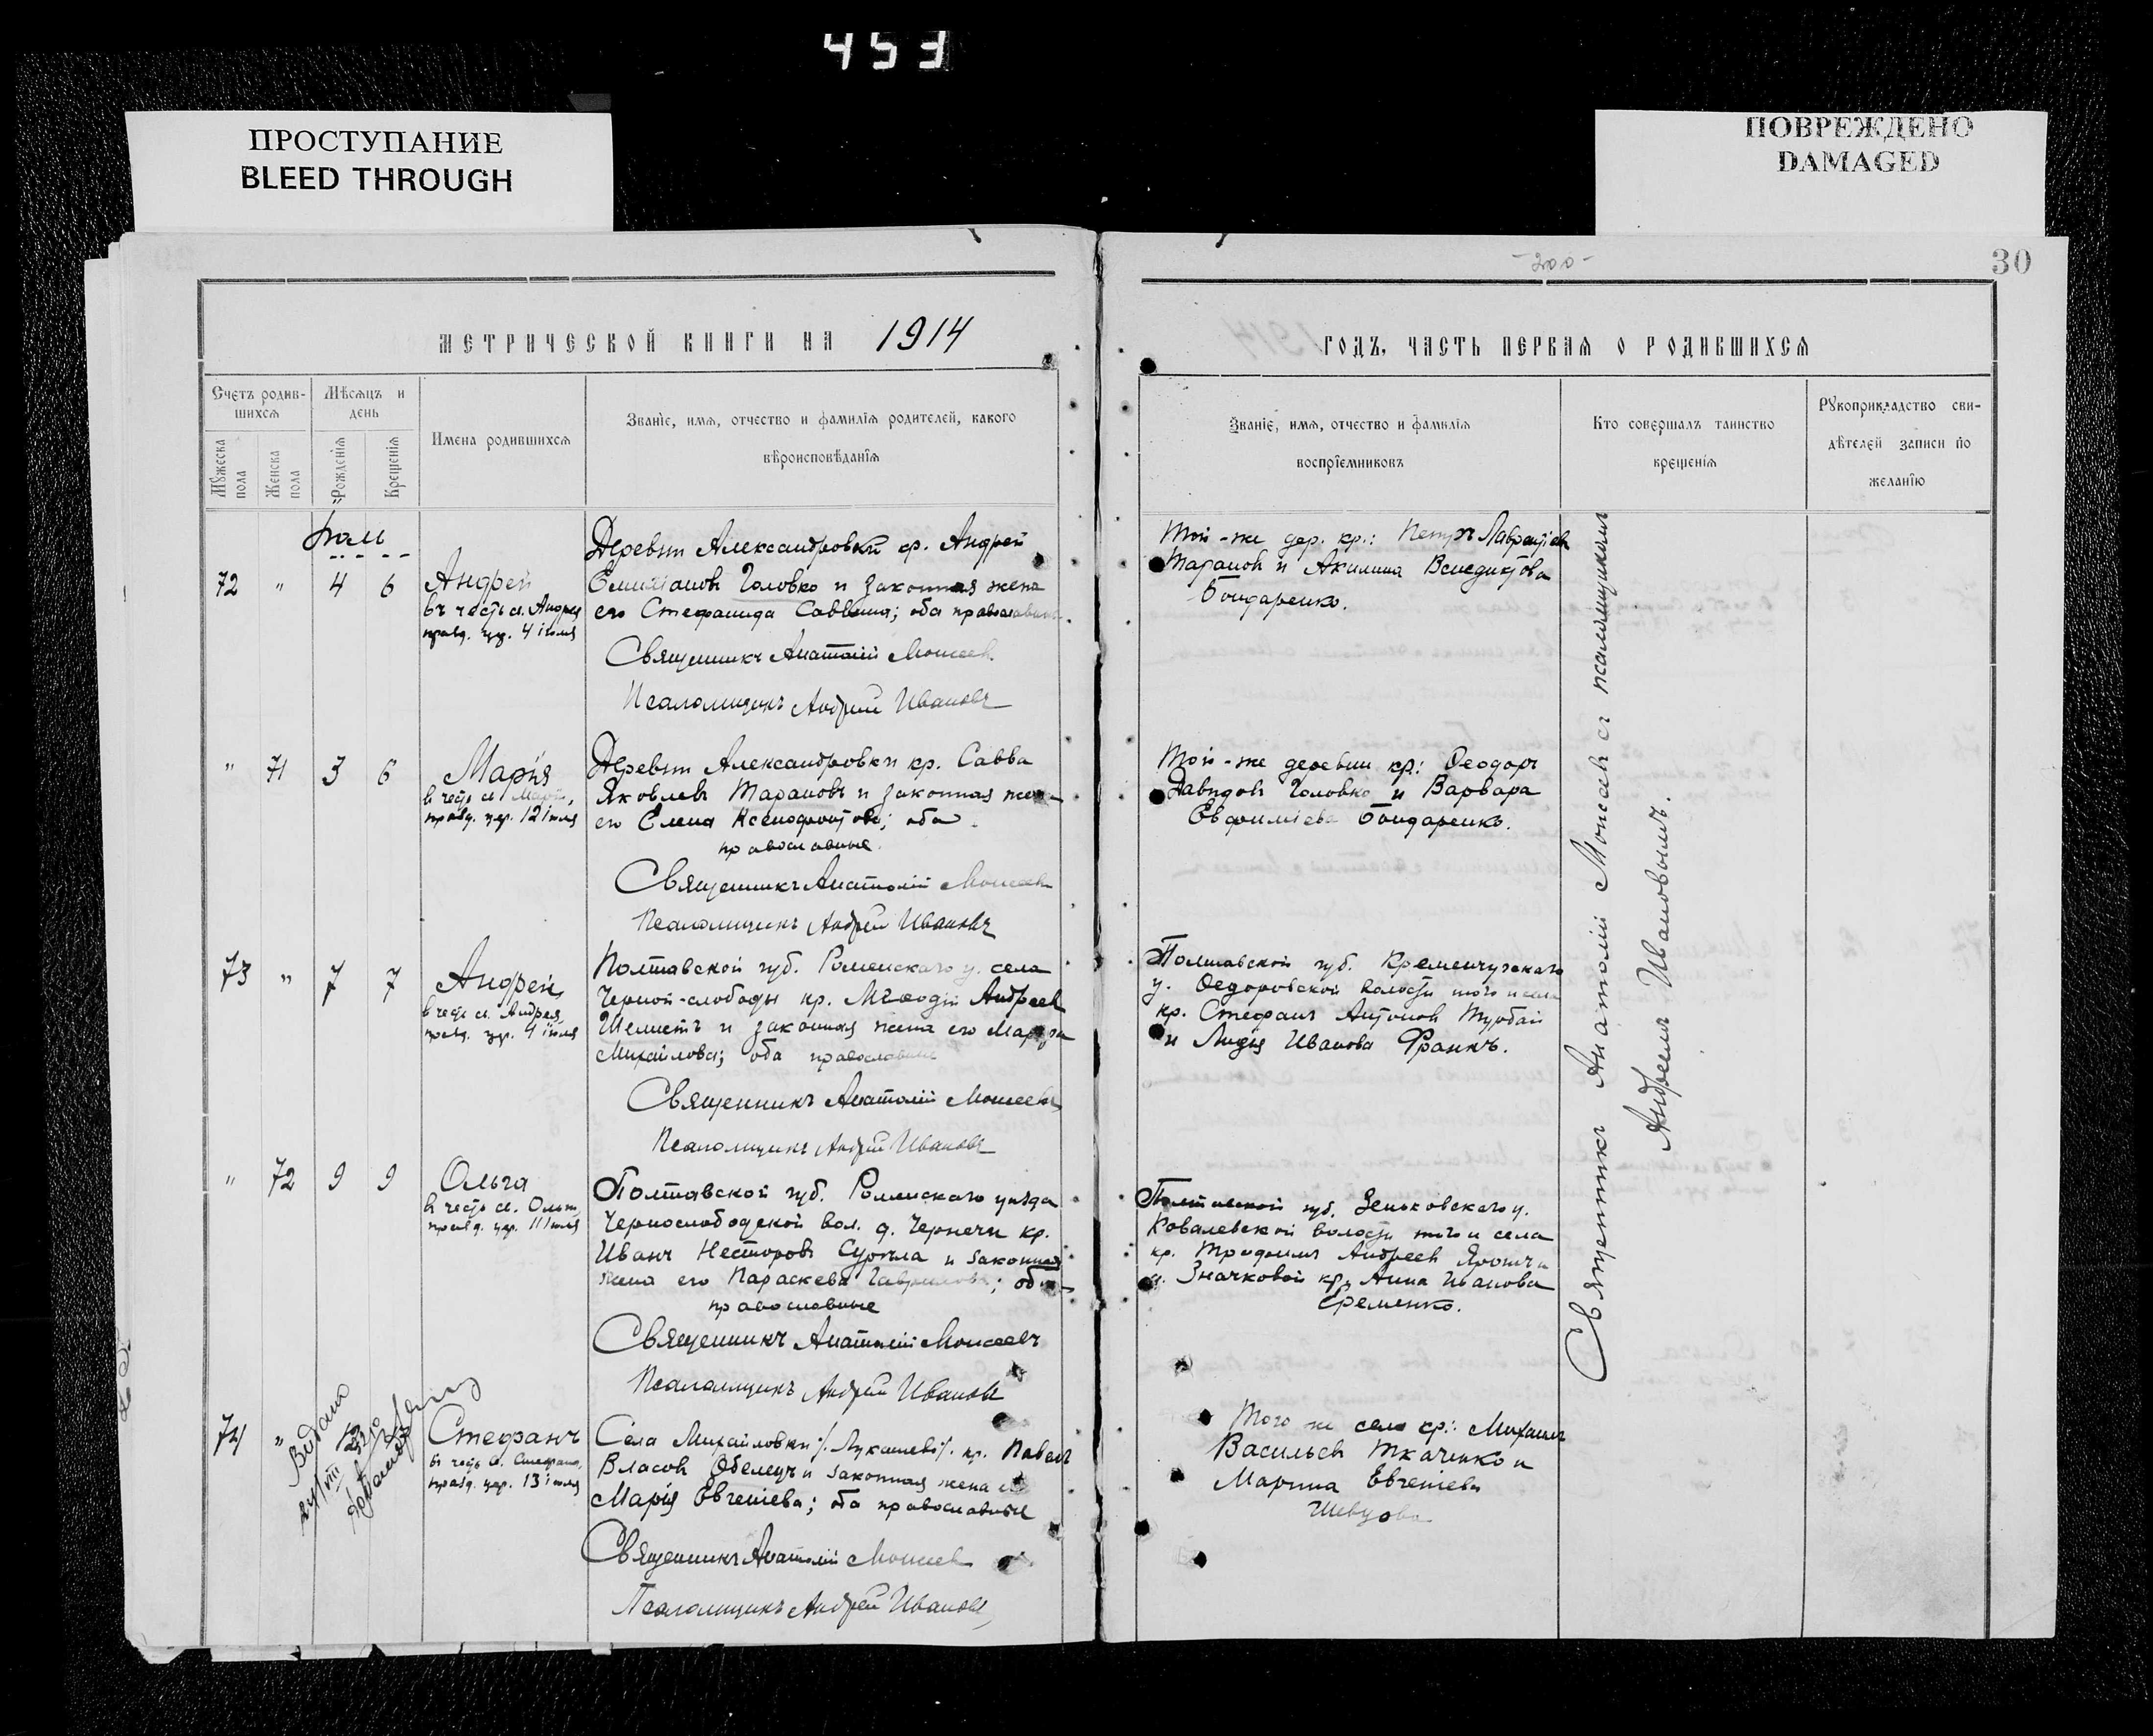 453
ПРОСТУПАНИЕ
BLEED THROUGH
ПОВРЕЖДЕНО
DAMAGED
-200-
30
МЕТРИЧЕСКОЙ КНИГИ НА 1914
ГОДЪ, ЧАСТЬ ПЕРВАЯ О РОДИВШИХСЯ
Счетъ родив-
шихся
Мѣсяцъ и
день
Мужеска
пола
Женска
пола
Рожденія
Крещенія
Имена родившихся
Званіе, имя, отчество и фамилія родителей, какого
вѣроисповѣданія
Званіе, имя, отчество и фамилія
воспріемниковъ
Кто совершалъ таинство
крещенія
Рукоприкладство сви-
дѣтелей записи по
желанію
72 " 4 6
Андрей
въ честь св. Андрея
празд. цр. 4 іюля
Деревни Александровки кр. Андрей
Емиліановъ Головко и законная жена
его Стефанида Саввина; оба православные
Священникъ Анатолій Моисеевъ
Псаломщикъ Андрей Ивановъ
Той-же дер. кр.: Петръ Лаврентіевъ
Тарановъ и Акилина Венедиктова
Бондаренко.
" 71 3 6
Марія
въ честь св. Маріи,
празд. цер. 12 іюля
Деревни Александровки кр. Савва
Яковлевъ Тарановъ и законная жена
его Елена Ксенофонтова; оба
православные.
Священникъ Анатолій Моисеевъ
Псаломщикъ Андрей Ивановъ
Той-же деревни кр.: Ѳеодоръ
Давидовъ Головко и Варвара
Евфиміева Бондаренко.
73 " 7 7
Андрей,
въ честь св. Андрея,
празд. цр. 4 іюля
Полтавской губ. Роменскаго у. села
Черной-слободы кр. Меѳодій Андреевъ
Шелестъ и законная жена его Марѳа
Михайлова; оба православные
Священникъ Анатолій Моисеевъ
Псаломщикъ Андрей Ивановъ
Полтавской губ. Кременчугскаго
у. Ѳедоровской волости того и села
кр. Стефанъ Антоновъ
и Лидія Иванова Франкъ.
" 72 9 9
Ольга
въ честь св. Ольги,
празд. цер. 11 іюля
Полтавской губ. Роменскаго уѣзда
Чернослободской вол. д. Чернечи кр.
Иванъ Несторовъ и законная
жена его Параскева Гаврилова; оба
православные
Священникъ Анатолій Моисеевъ
Псаломщикъ Андрей Ивановъ
Полтавской губ. Зеньковскаго у.
Ковалевской волости того и села
кр. Трофимъ Андреевъ и
Значковой кр. Анна Иванова
Еременко.
74 "
Стефанъ
въ честь св. Стефана,
празд. цер. 13 іюля
Села Михайловки /.Лукашевъ/. кр. Павелъ
Власовъ и законная жена его
Марія Евгеніева; оба православные
Священникъ Анатолій Моисеевъ
Псаломщикъ Андрей Ивановъ
Того же села кр.: Михаилъ
Васильевъ Ткаченко и
Марина Евгеніева
Шевцова
Священникъ Анатолій Моисеевъ съ псаломщикомъ
Андреемъ Ивановымъ.